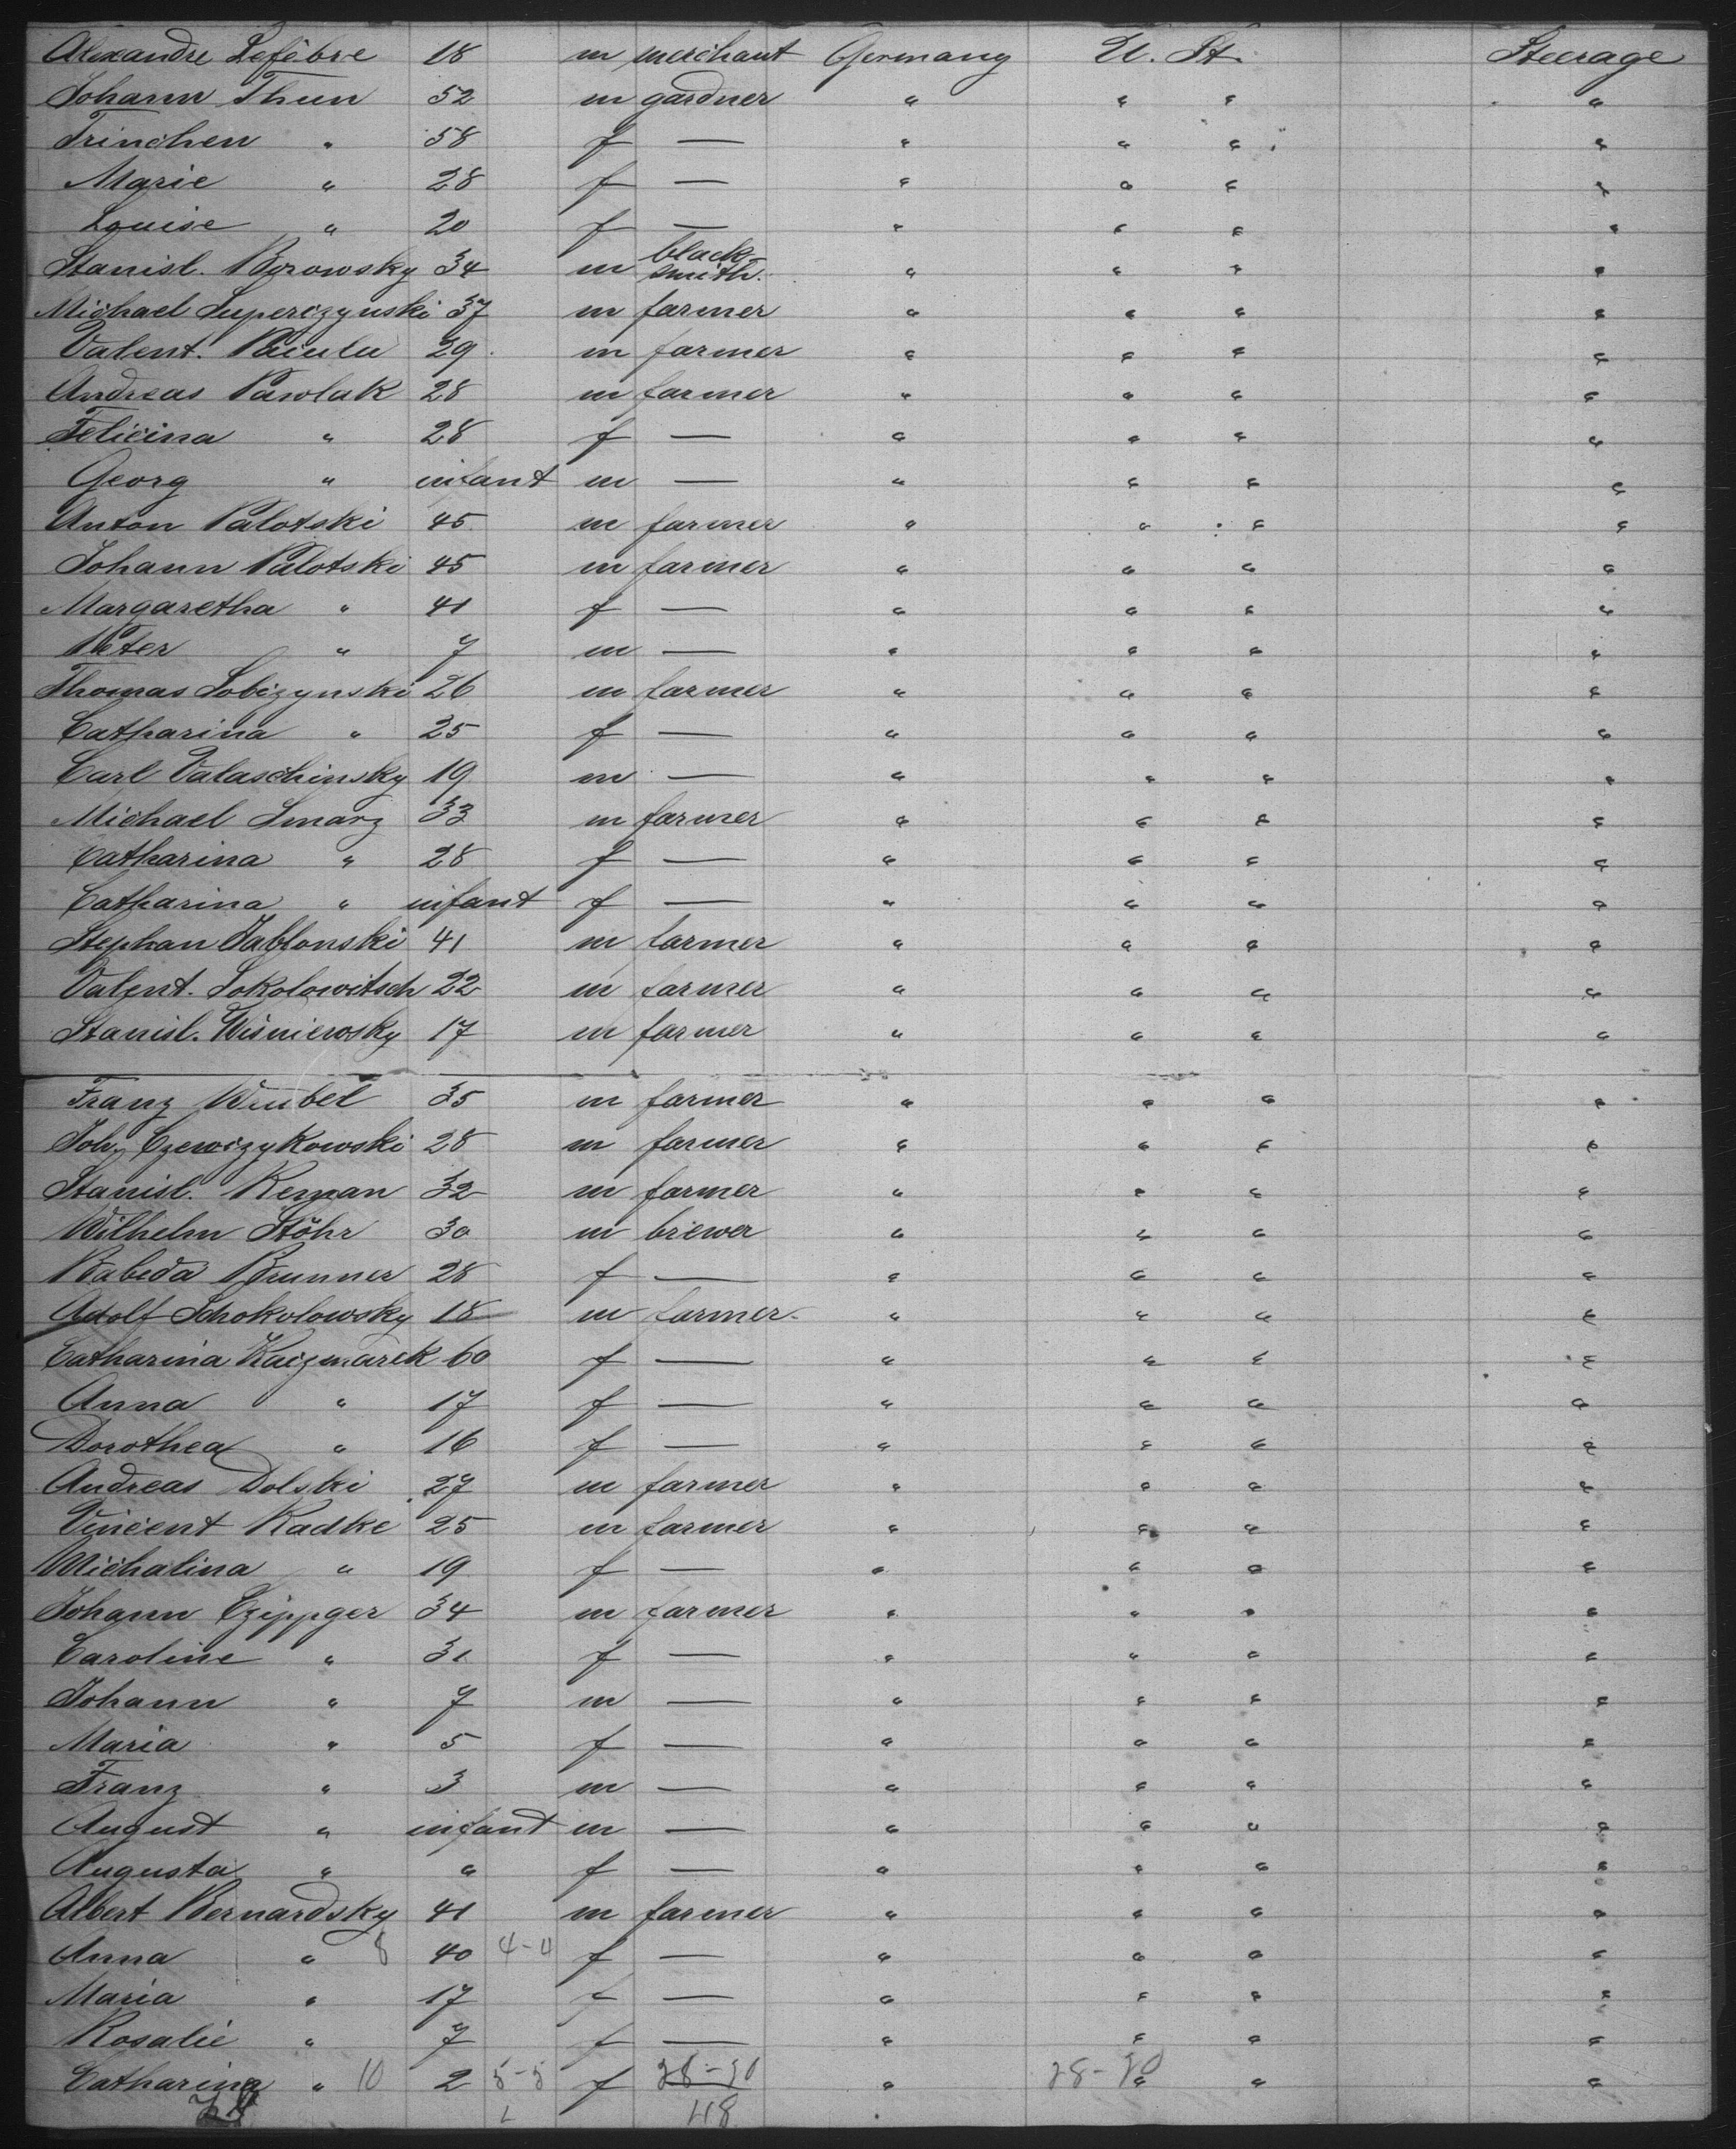 Alexandre Lefébre 18 m merchant Germany U. St. Steerage
Johann Thun 52 m gardner " " " "
Trinchen " 58 f — " " " "
Marie " 28 f — " " " "
Louise " 20 f — " " " "
Stanisl. Borowsky 34 m black-smith. " " " "
Michael Superczynski 37 m farmer " " " "
Valent. 29 m farmer " " " "
Andreas Pawlak 28 m farmer " " " "
Felicina " 28 f — " " " "
Georg " infant m — " " " "
Anton Palotski 45 m farmer " " " "
Johann Palotski 45 m farmer " " " "
Margaretha " 41 f — " " " "
Peter " 7 m — " " " "
Thomas Sobczynski 26 m farmer " " " "
Catharina " 25 f — " " " "
Carl Valaschinsky 19 m — " " " "
Michael Smarz 33 m farmer " " " "
Catharina " 28 f — " " " "
Catharina " infant f — " " " "
Stephan Jablonski 41 m farmer " " " "
Valent. Sokolowitsch 22 m farmer " " " "
Stanisl. Wisniewsky 17 m farmer " " " "
Franz Wrubel 35 m farmer " " " "
Joh. 28 m farmer " " " "
Stanisl. Reman 32 m farmer " " " "
Wilhelm Stöhr 30 m brewer " " " "
Babeda Brunner 28 f — " " " "
Adolf Schokolowsky 18 m farmer " " " "
Catharina Kaczmarek 60 f — " " " "
Anna " 17 f — " " " "
Dorothea " 16 f — " " " "
Andreas Dolski 27 m farmer " " " "
Vincent Radke 25 m farmer " " " "
Michalina " 19 f — " " " "
Johann Czippger 34 m farmer " " " "
Caroline " 31 f — " " " "
Johann " 7 m — " " " "
Maria " 5 f — " " " "
Franz " 3 m — " " " "
August " infant m — " " " "
Augusta " " f — " " " "
Albert Bernardsky 41 m farmer " " " "
Anna " 8 40 4-4 f — " " " "
Maria " 17 f — " " " "
Rosalie " 7 f — " " " "
Catharina " 10 2 5-5 f 28-20 " 28-20 " " "
48